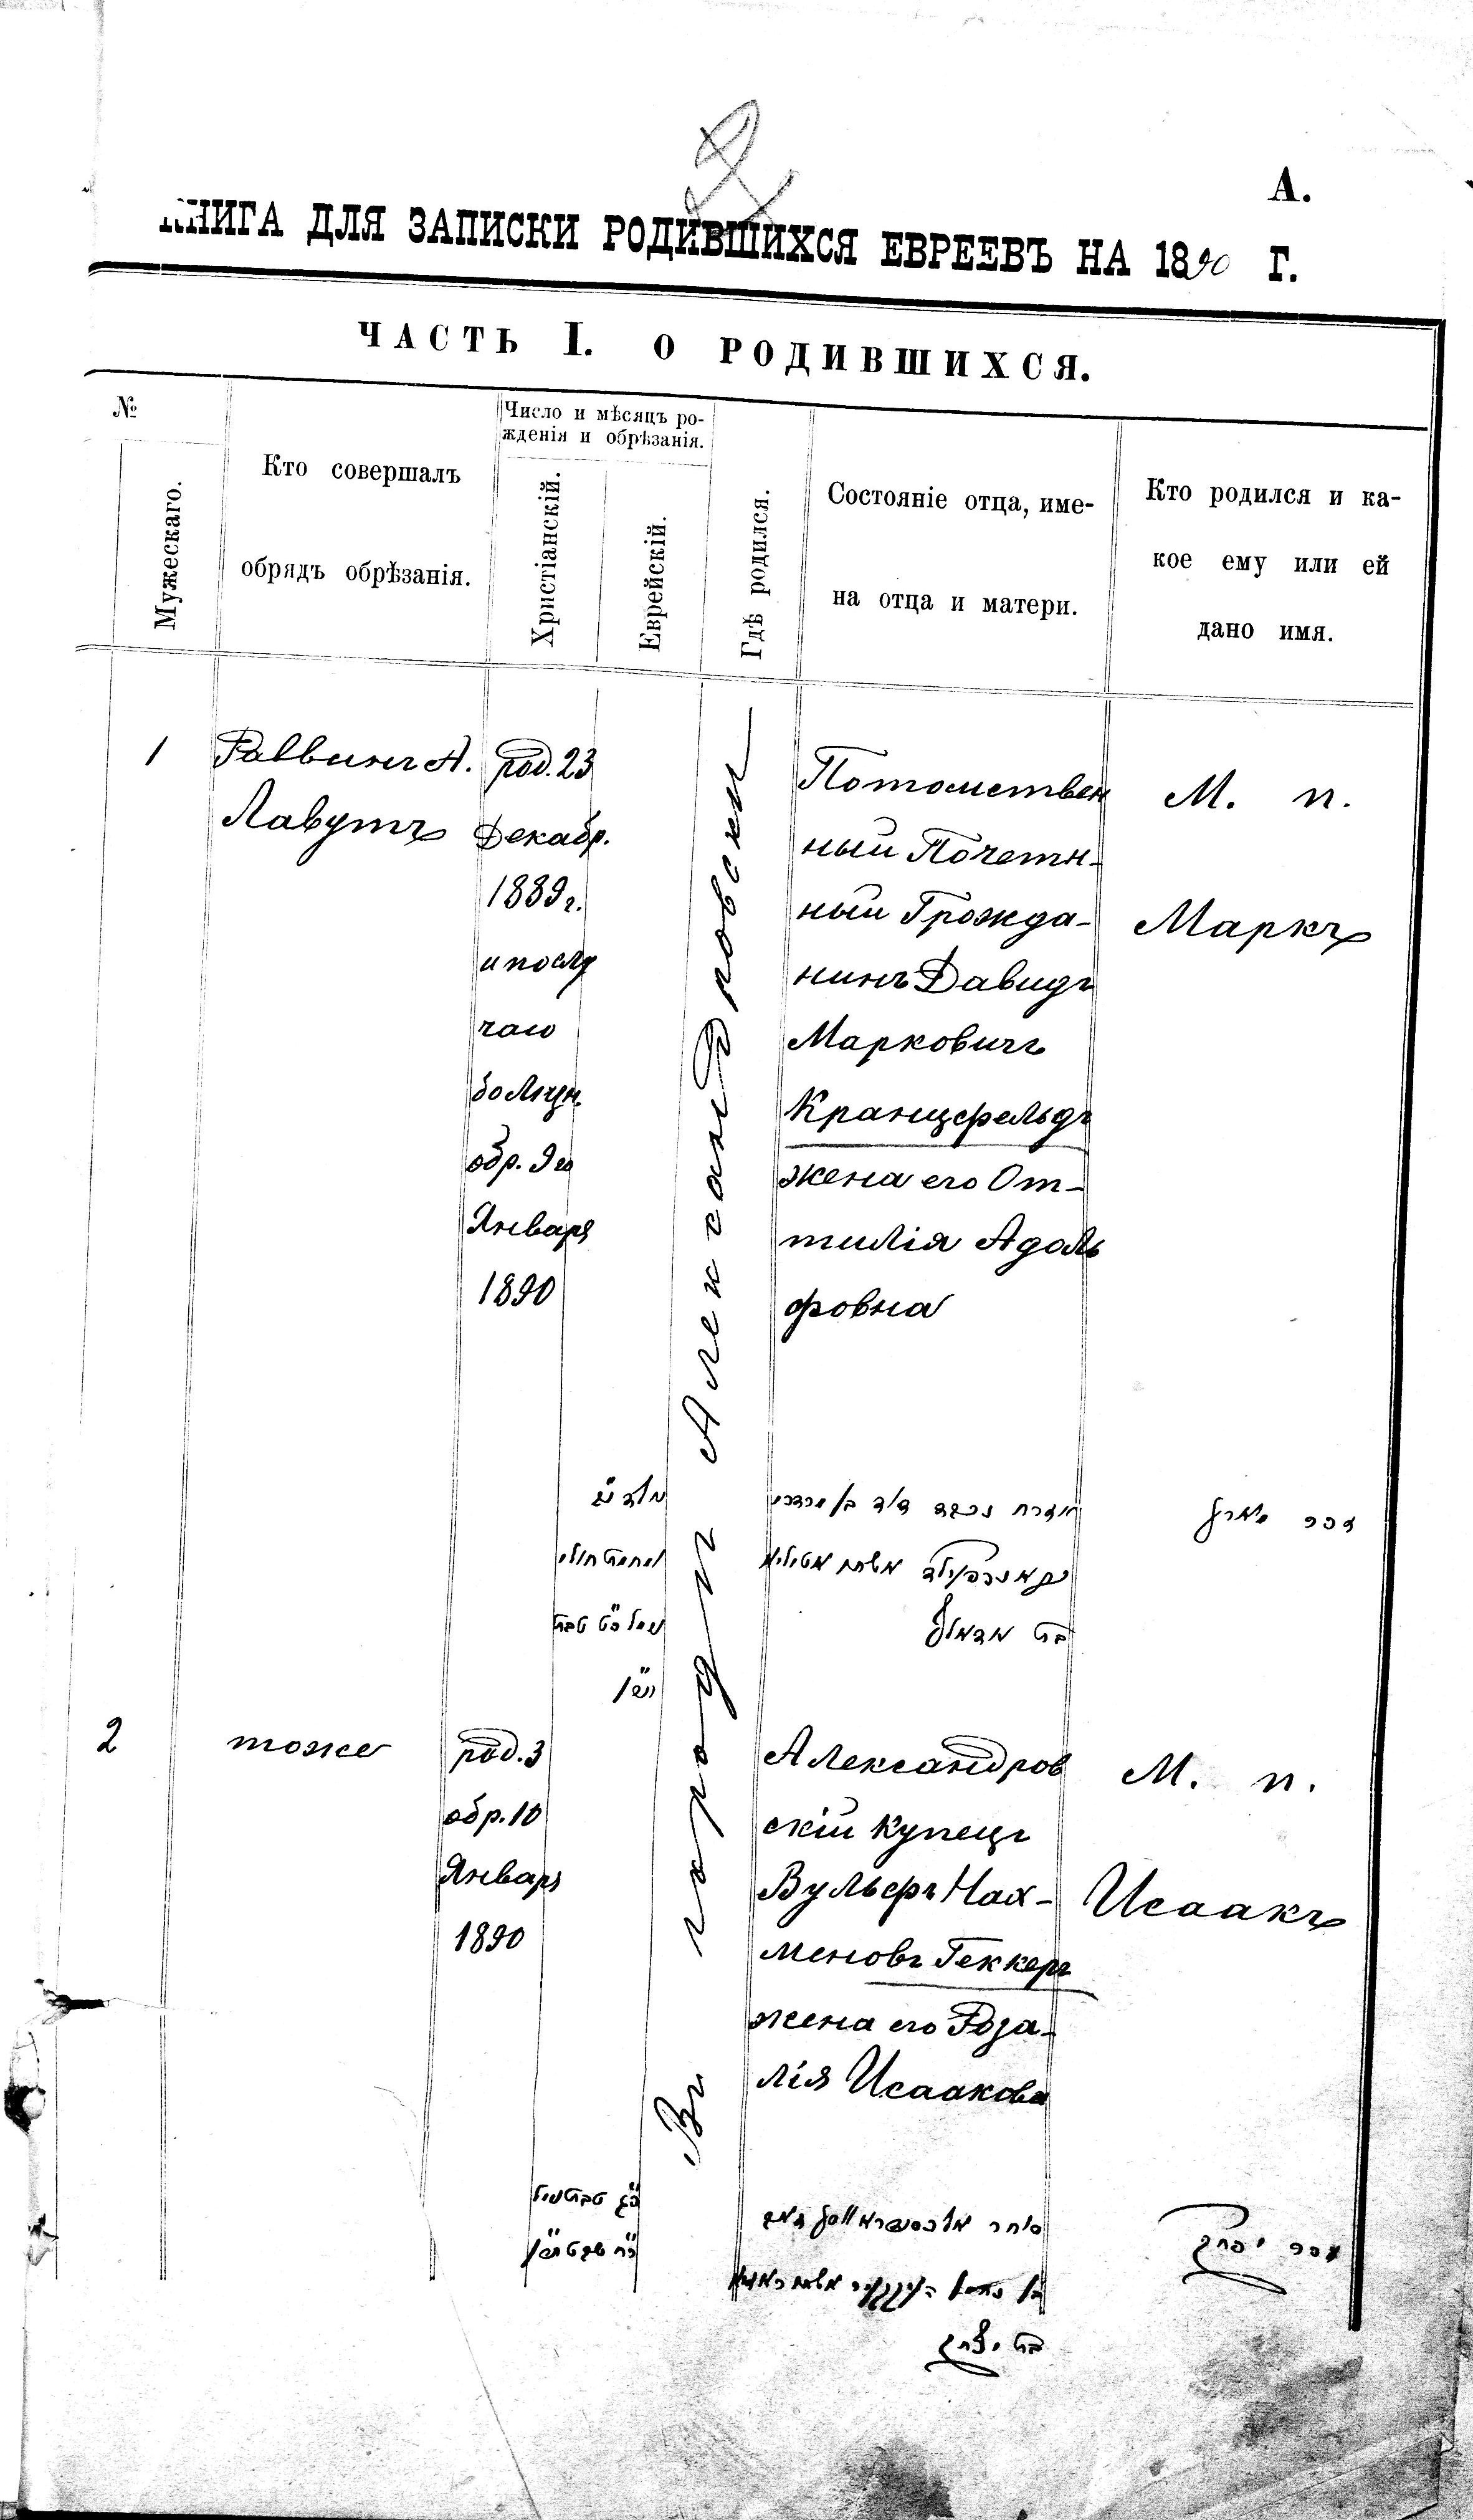 А.
КНИГА ДЛЯ ЗАПИСКИ РОДИВШИХСЯ ЕВРЕЕВЪ НА 1890 Г.
ЧАСТЬ I. О РОДИВШИХСЯ.
№
Мужескаго.
Кто совершалъ
обрядъ обрѣзанія.
Число и мѣсяцъ ро-
жденія и обрѣзанія.
Христіанскій.
Еврейскій.
Гдѣ родился.
Состояніе отца, име-
на отца и матери.
Кто родился и ка-
кое ему или ей
дано имя.
1
Раввинъ А.
Лавутъ
род. 23
Декабр.
1889 г.
и по слу
чаю
болѣзн.
обр. 9го
Января
1890
Въ городѣ Александровскѣ
Потомствен
ный Почетн-
ный Гражда-
нинъ Давидъ
Марковичъ
Кранцфельдъ
жена его От-
тилія Адоль
фовна
М. п.
Маркъ
אזרח נכבד דוד בן מרדכי
בת אדאלף
זכר מארק
2
тоже
род. 3
обр. 10
Января
1890
Александров
скій купецъ
Вульфъ Нах-
меновъ Геккеръ
жена его Роза-
лія Исаакова
М. п.
Исаакъ
בת יצחק
זכר יצחק